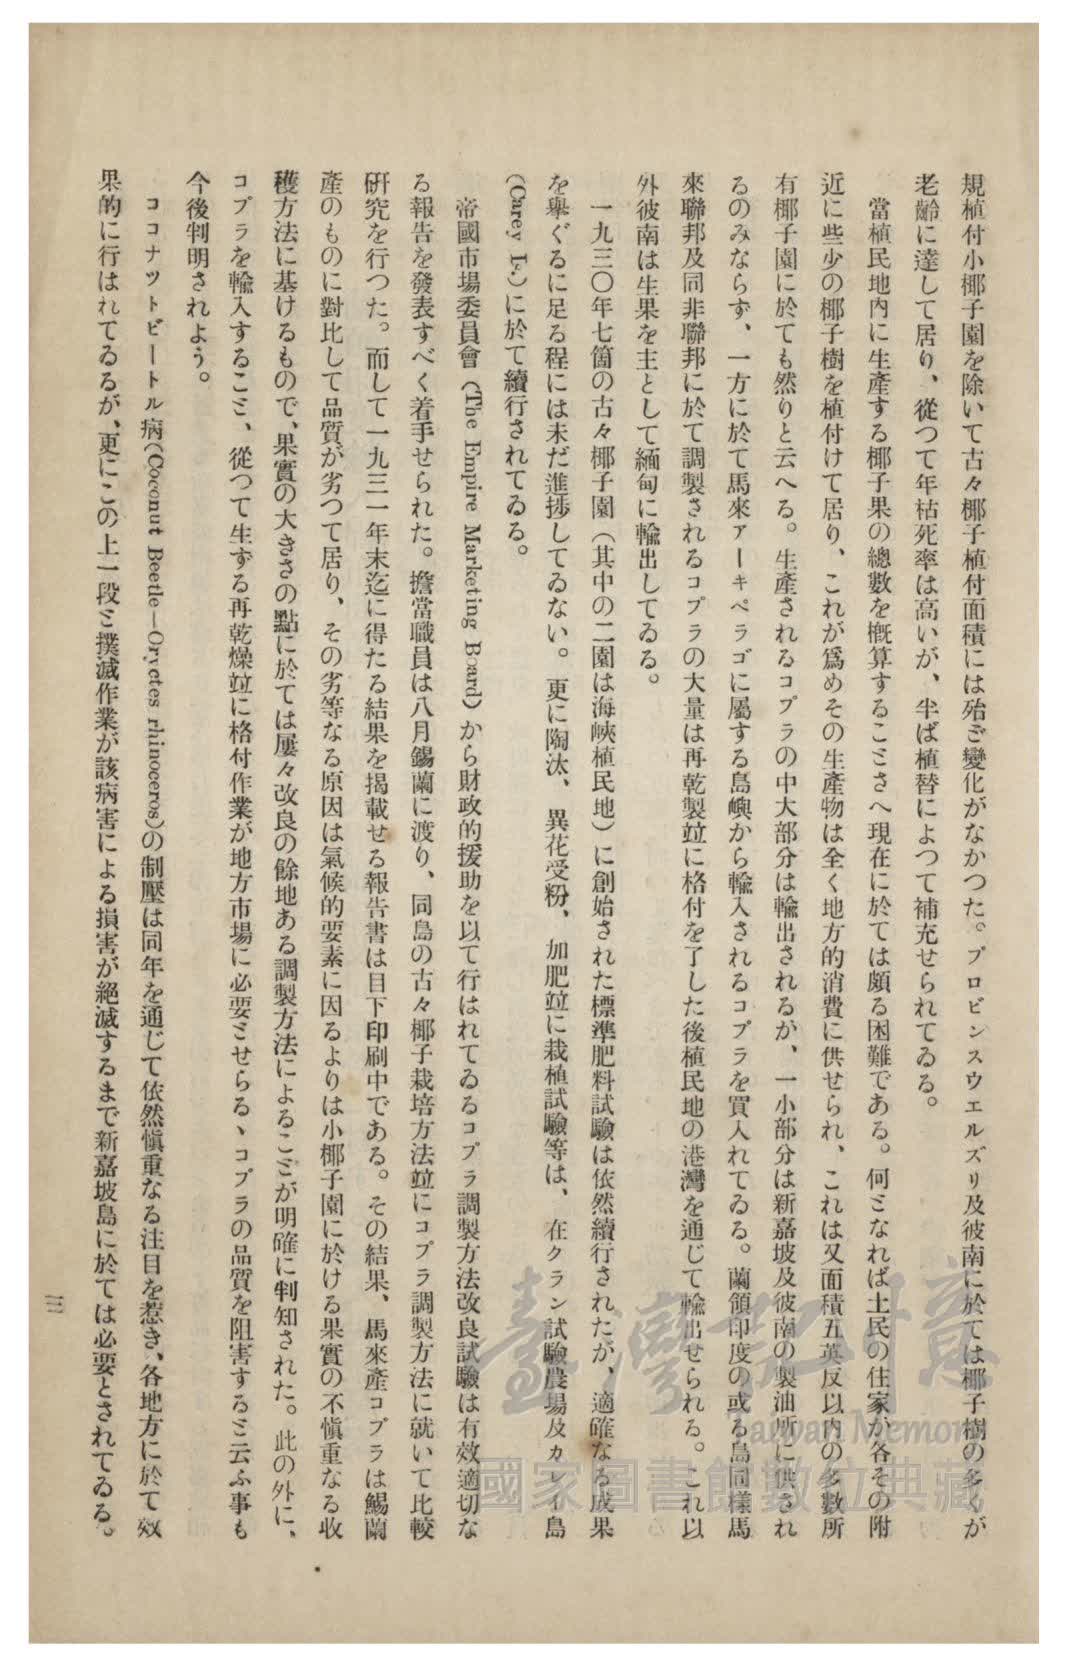 規植付小椰子園を除いて古々椰子植付面積には殆ご變化がなかつた。プロビンスウエルズリ及彼南に於ては椰子樹の多くが
老齡に達して居り、從つて年枯死率は高いが、半ば植替によつて補充せられてゐる。
當植民地內に生產する椰子果の總數を槪算するこミさへ現在に於ては頗る困難である。何ミなれば土民の住家が各その附
近に些少の椰子樹を植付けて居り、これが爲めその生產物は全く地方的消費に供せられ、これは又面積五英反以內の多數所
有椰子園に於ても然りと云へる。生產されるコプラの中大部分は輸出されるが、一小部分は新嘉坡及彼南の製油所に供され
るのみならず、一方に於て馬來アーキペラゴに屬する島嶼から輸入されるコプラを買入れてゐる。蘭領印度の或る島同樣馬
來聯邦及同非聯邦に於て調製されるコプラの大量は再乾製竝に格付を了した後植民地の港灣を通じて輸出せられる。これ以
外彼南は生果を主として緬甸に輸出してゐる。
一九三〇年七箇の古々椰子園（其中の二園は海峽植民地）に創始された標準肥料試驗は依然續行されたが、適確なる成果
を擧ぐるに足る程には未だ進捗してゐない。更に陶汰、異花受粉、加肥竝に栽植試驗等は、在クラン試驗農場及カレイ島
（Carey Is.）に於て續行されてゐる。
帝國市場委員會（The Empire Marketing Board）から財政的援助を以て行はれてゐるコプラ調製方法改良試驗は有效適切な
る報告を發表すべく着手せられた。擔當職員は八月錫蘭に渡り、同島の古々椰子栽培方法竝にコプラ調製方法に就いて比較
硏究を行つた。而して一九三一年末迄に得たる結果を揭載せる報告書は目下印刷中である。その結果、馬來產コプラは錫蘭
產のものに對比して品質が劣つて居り、その劣等なる原因は氣候的要素に因るよりは小椰子園に於ける果實の不愼重なる收
穫方法に基けるもので、果實の大きさの點に於ては屢々改良の餘地ある調製方法によるこミが明確に判知された。此の外に、
コプラを輸入するこミ、從つて生ずる再乾燥竝に格付作業が地方市場に必要ミせらるゝコプラの品質を阻害するミ云ふ事も
今後判明されよう。
ココナツトビートル病（Coconut Beetle—Oryctes rhinoceros）の制壓は同年を通じて依然愼重なる注目を惹き、各地方に於て效
果的に行はれてゐるが、更にこの上一段ミ撲滅作業が該病害による損害が絕滅するまで新嘉坡島に於ては必要とされてゐる。
三
臺灣記憶
Taiwan Memory
國家圖書館數位典藏